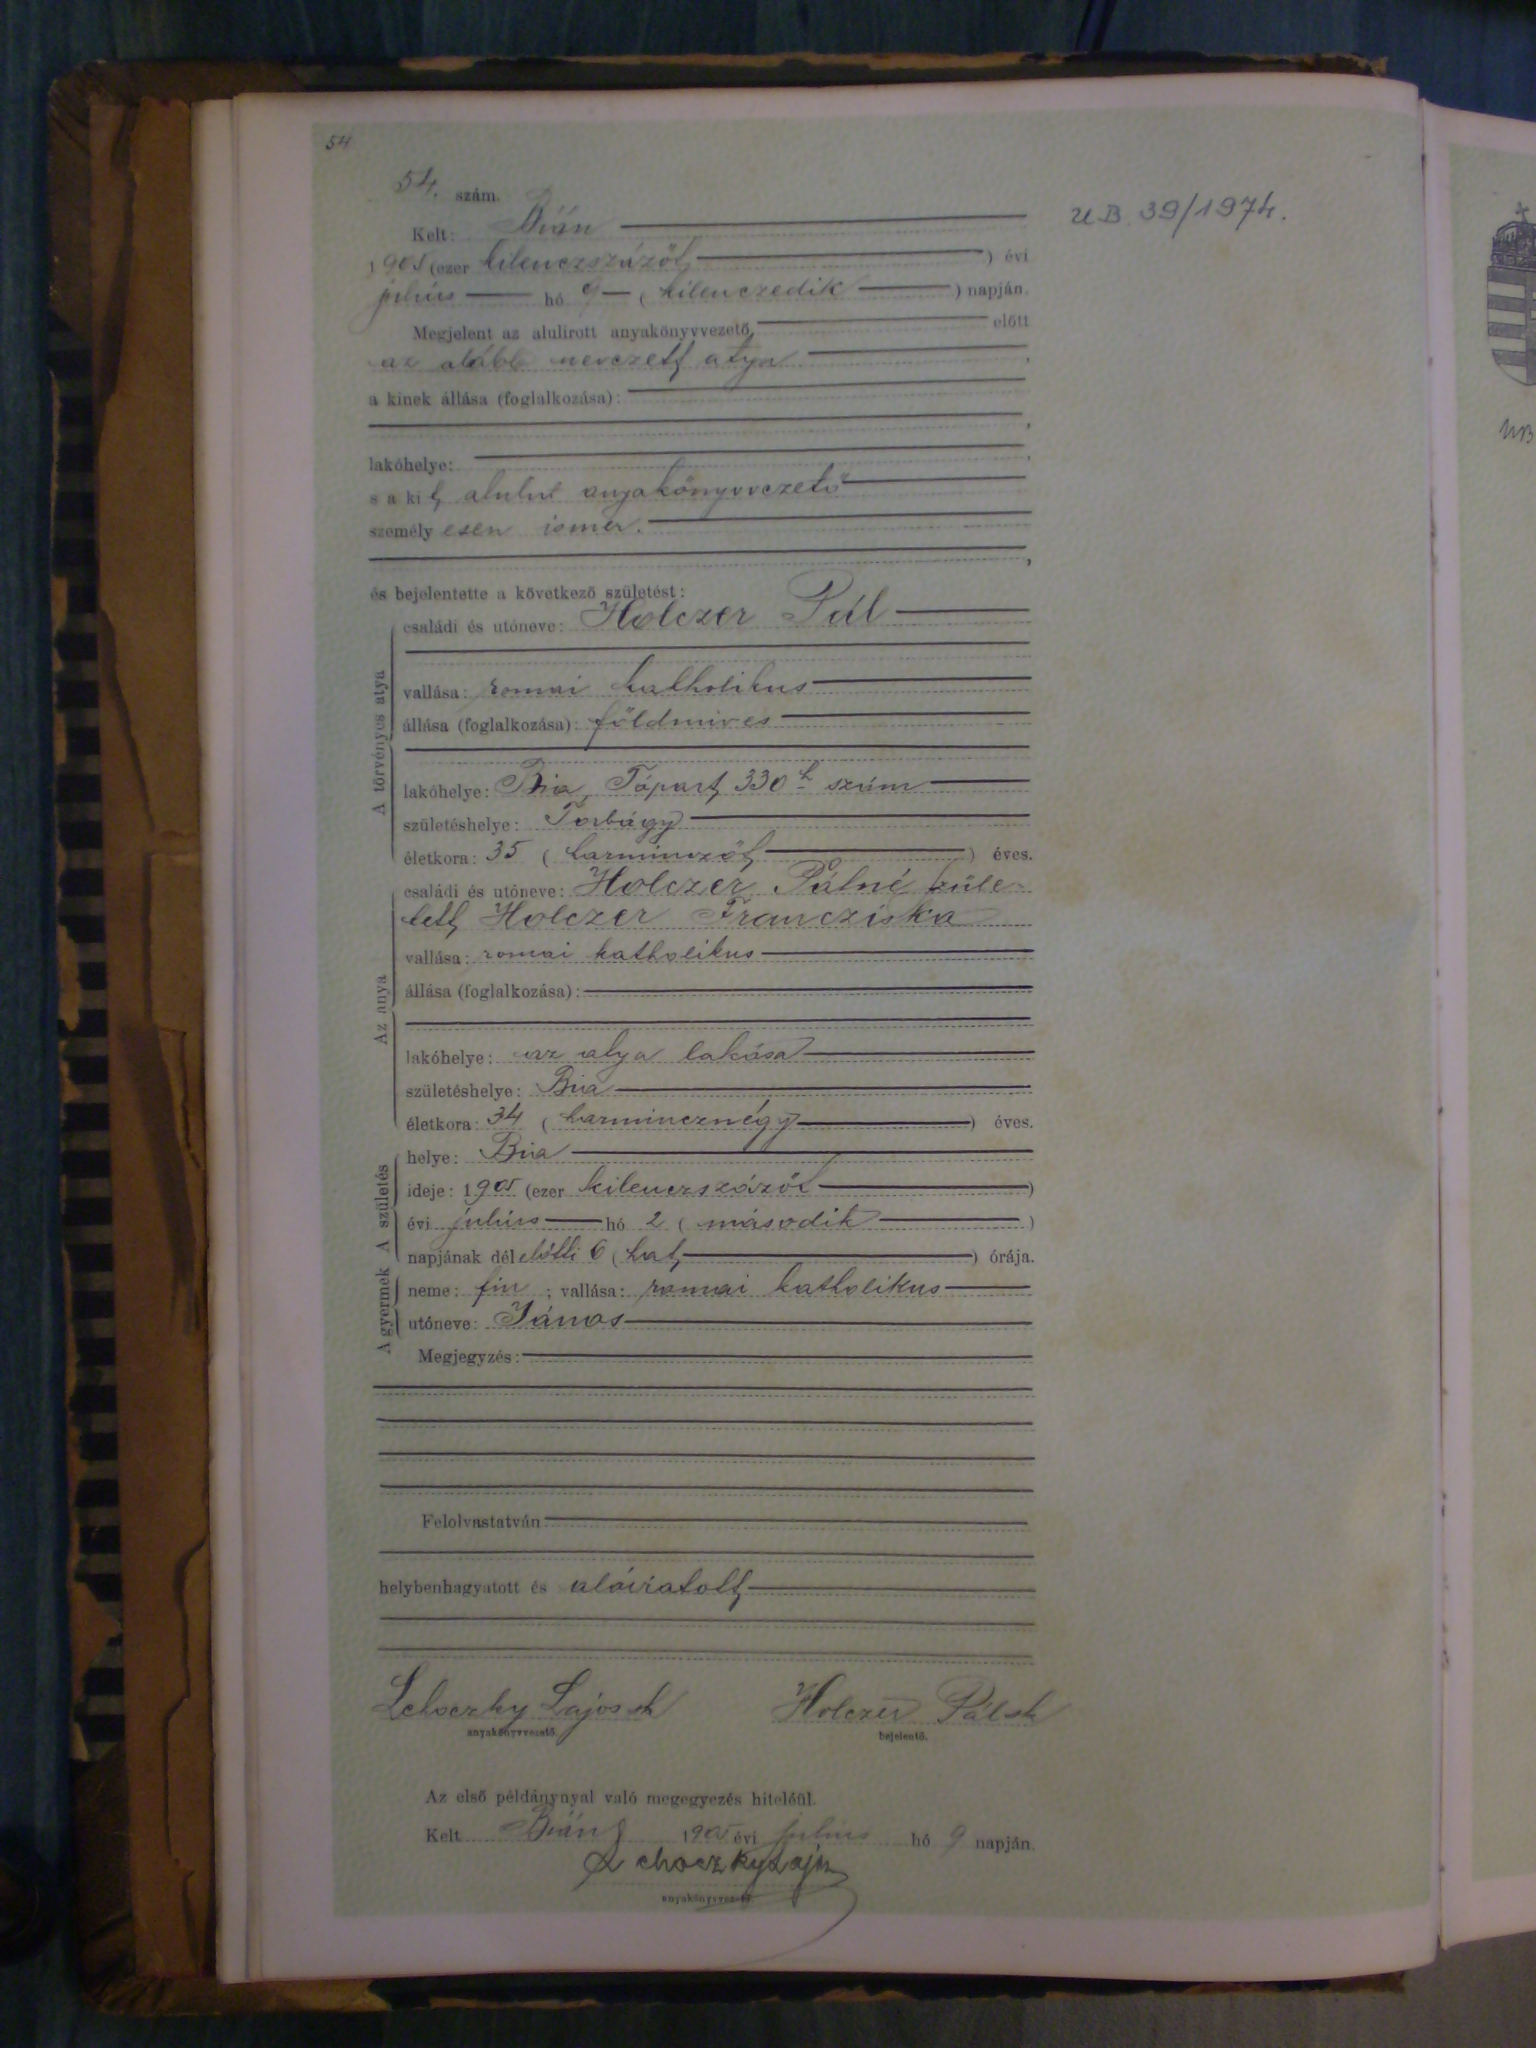 54
54. szám.
UB. 39/1974.
Kelt: Bián
1905 (ezer kilenczszázöt) évi
julius hó 9 (kilenczedik) napján.
Megjelent az alulirott anyakönyvvezető előtt
az alább nevezett atya,
a kinek állása (foglalkozása):
lakóhelye:
s a kit alulirt anyakönyvvezető
személyesen ismer.
és bejelentette a következő születést:
A törvényes atya
családi és utóneve: Holczer Pál
vallása: romai katholikus
állása (foglalkozása): földmives
lakóhelye: Bia, Tópart 330 h. szám
születéshelye: Torbágy
életkora: 35 (harminczöt) éves.
Az anya
családi és utóneve: Holczer Pálné szüle-
tett Holczer Francziska
vallása: romai katholikus
állása (foglalkozása):
lakóhelye: az atya lakása
születéshelye: Bia
életkora: 34 (harmincznégy) éves.
A születés
helye: Bia
ideje: 1905 (ezer kilenczszázöt)
évi julius hó 2 (második)
napjának délelőtti 6 (hat) órája.
A gyermek
neme: fiu; vallása: romai katholikus
utóneve: János
Megjegyzés:
Felolvastatván
helybenhagyatott és aláiratott
Lehoczky Lajos sk Holczer Pál sk
anyakönyvvezető. bejelentő.
Az első példánynyal való megegyezés hiteléül.
Kelt Bián 1905 évi julius hó 9 napján.
Lehoczky Lajos
anyakönyvvezető.